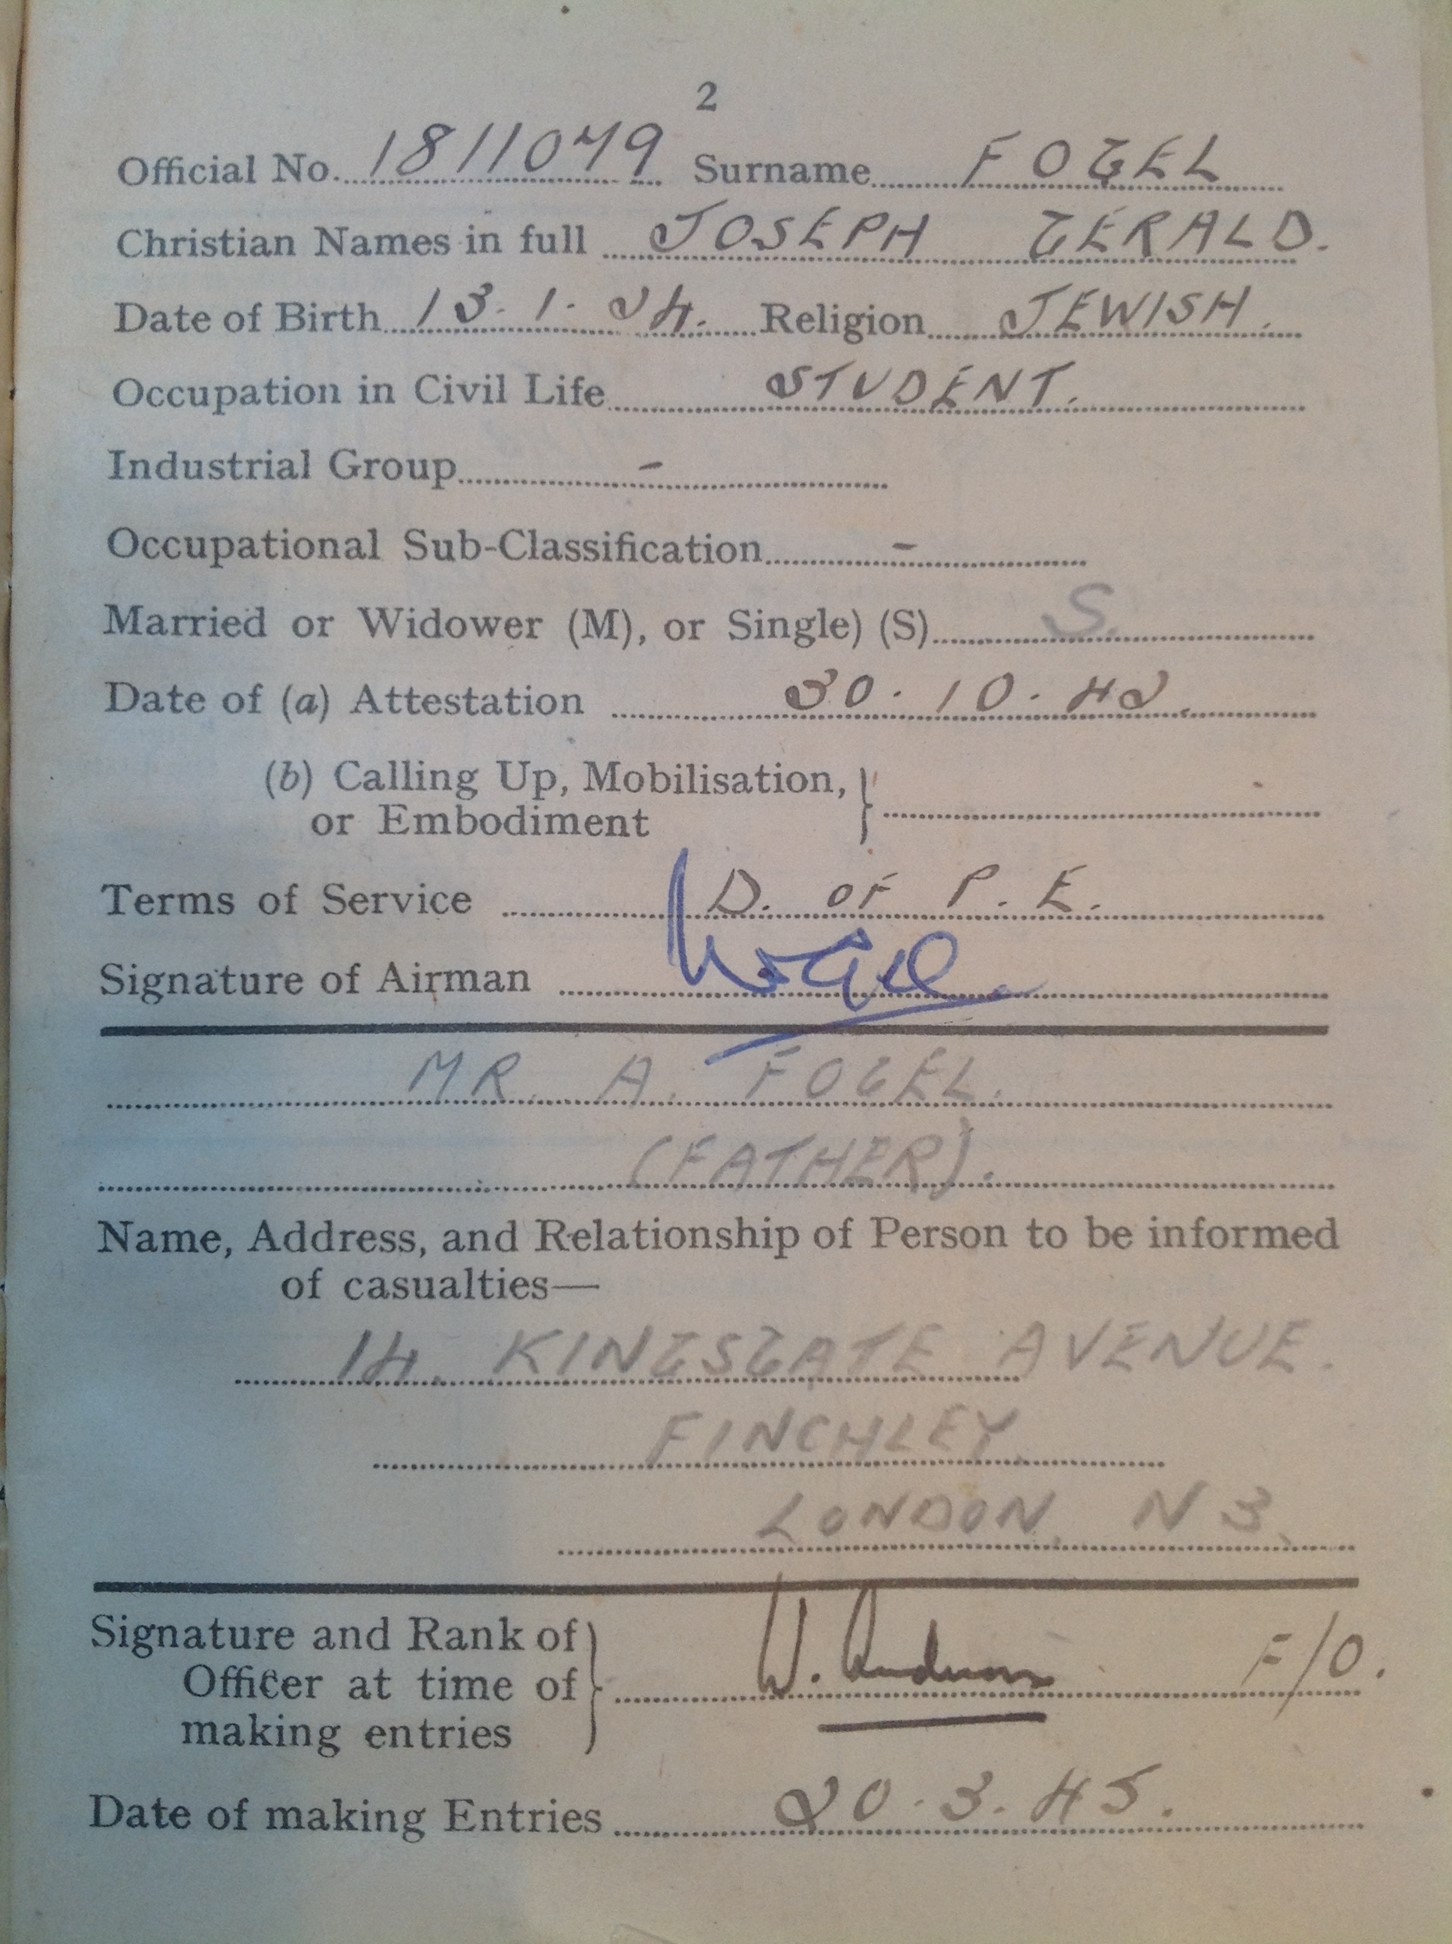 2
Official No. 1811079 Surname FOGEL
Christian Names in full JOSEPH GERALD.
Date of Birth 13.1.24. Religion JEWISH.
Occupation in Civil Life STUDENT.
Industrial Group -
Occupational Sub-Classification -
Married or Widower (M), or Single) (S) S.
Date of (a) Attestation 30.10.42.
(b) Calling Up, Mobilisation, }
or Embodiment
Terms of Service D. OF P.E.
Signature of Airman
MR. A. FOGEL.
(FATHER).
Name, Address, and Relationship of Person to be informed
of casualties—
14. KINGSGATE AVENUE.
FINCHLEY.
LONDON. N3.
Signature and Rank of
Officer at time of } W. F/O.
making entries
Date of making Entries 20.3.45.